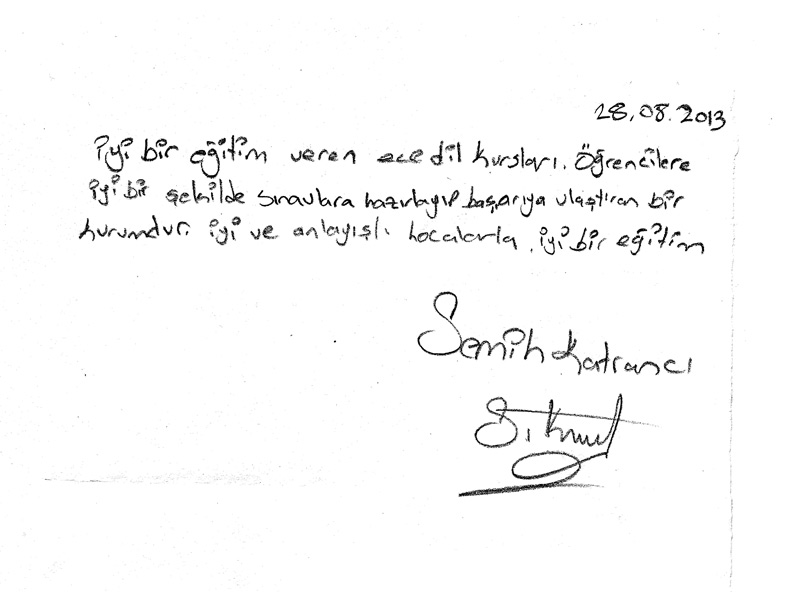 28.08.2013
iyi bir eğitim veren ece dil kursları. Öğrencilere
iyi bir şekilde sınavlara hazırlayıp başarıya ulaştıran bir
kurumdur. iyi ve anlayışlı hocalarla, iyi bir eğitim
Semih Katrancı